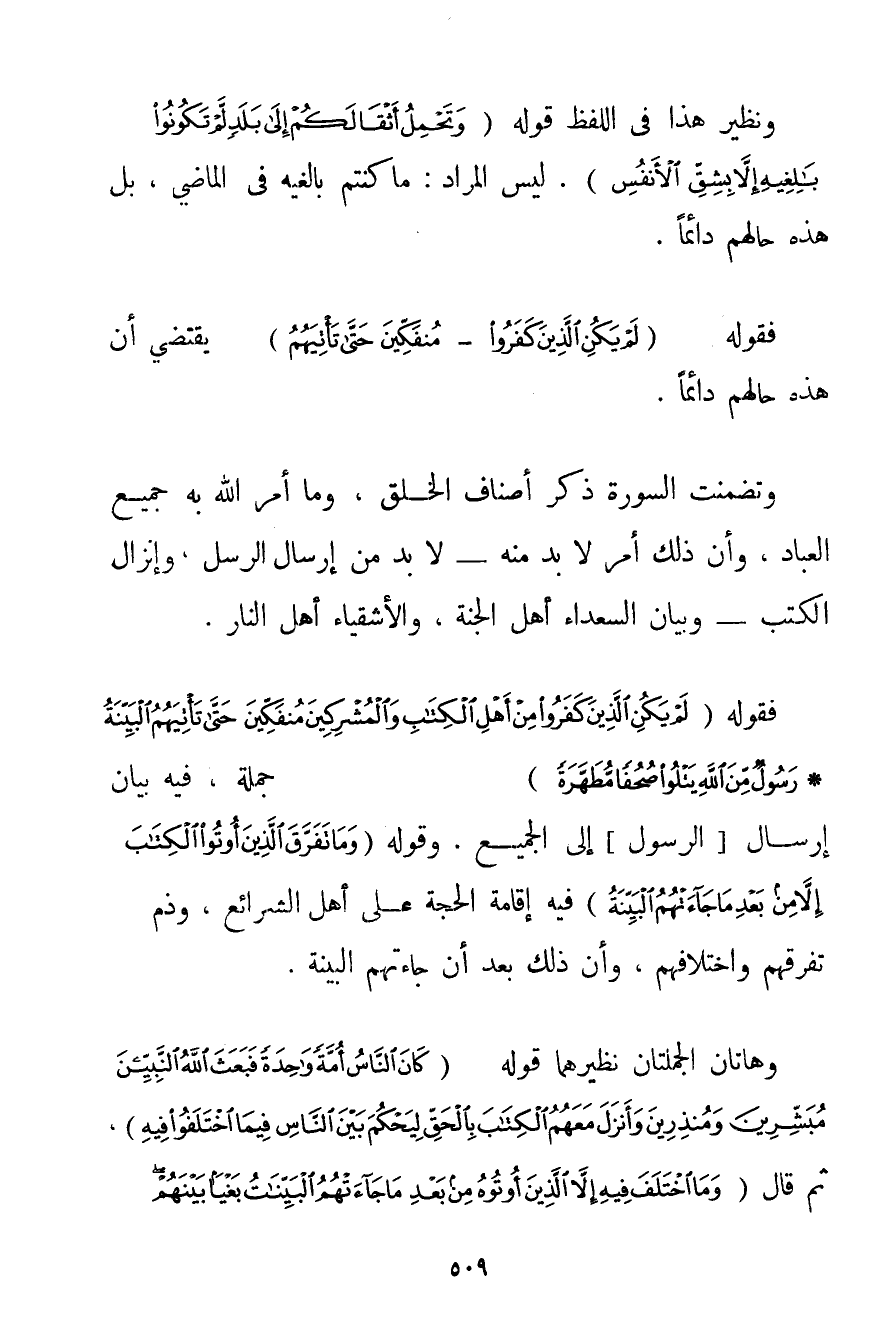 ونظير هذا فى اللفظ قوله ( وَتَحْمِلُ أَثْقَالَكُمْ إِلَىٰ بَلَدٍ لَّمْ تَكُونُوا۟
بَـٰلِغِيهِ إِلَّا بِشِقِّ ٱلْأَنفُسِ ) . ليس المراد : ما كنتم بالغيه فى الماضي ، بل
هذه حالهم دائماً .
فقوله ( لَمْ يَكُنِ ٱلَّذِينَ كَفَرُوا۟ - مُنفَكِّينَ حَتَّىٰ تَأْتِيَهُمُ ) يقتضي أن
هذه حالهم دائماً .
وتضمنت السورة ذكر أصناف الخلق ، وما أمر الله به جميع
العباد ، وأن ذلك أمر لا بد منه — لا بد من إرسال الرسل ، وإنزال
الكتب — وبيان السعداء أهل الجنة ، والأشقياء أهل النار .
فقوله ( لَمْ يَكُنِ ٱلَّذِينَ كَفَرُوا۟ مِنْ أَهْلِ ٱلْكِتَـٰبِ وَٱلْمُشْرِكِينَ مُنفَكِّينَ حَتَّىٰ تَأْتِيَهُمُ ٱلْبَيِّنَةُ
* رَسُولٌ مِّنَ ٱللَّهِ يَتْلُوا۟ صُحُفًا مُّطَهَّرَةً ) جملة ، فيه بيان
إرسال [ الرسول ] إلى الجميع . وقوله ( وَمَا تَفَرَّقَ ٱلَّذِينَ أُوتُوا۟ ٱلْكِتَـٰبَ
إِلَّا مِنۢ بَعْدِ مَا جَآءَتْهُمُ ٱلْبَيِّنَةُ ) فيه إقامة الحجة على أهل الشرائع ، وذم
تفرقهم واختلافهم ، وأن ذلك بعد أن جاءتهم البينة .
وهاتان الجملتان نظيرهما قوله ( كَانَ ٱلنَّاسُ أُمَّةً وَٰحِدَةً فَبَعَثَ ٱللَّهُ ٱلنَّبِيِّـۧنَ
مُبَشِّرِينَ وَمُنذِرِينَ وَأَنزَلَ مَعَهُمُ ٱلْكِتَـٰبَ بِٱلْحَقِّ لِيَحْكُمَ بَيْنَ ٱلنَّاسِ فِيمَا ٱخْتَلَفُوا۟ فِيهِ ) ،
ثم قال ( وَمَا ٱخْتَلَفَ فِيهِ إِلَّا ٱلَّذِينَ أُوتُوهُ مِنۢ بَعْدِ مَا جَآءَتْهُمُ ٱلْبَيِّنَـٰتُ بَغْيًۢا بَيْنَهُمْ ۖ
٥٠٩